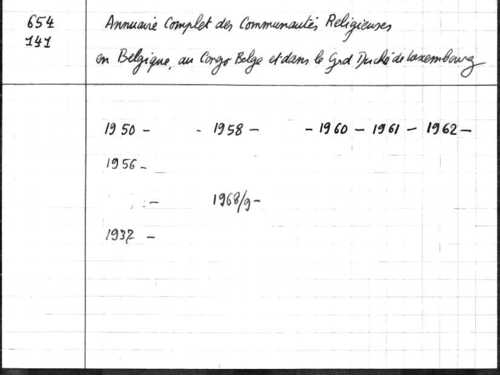 654 Annuaire Complet des Communautés Religieuses
141 en Belgique, au Congo Belge et dans le Grd Duché de Luxembourg
1950 - - 1958 - - 1960 - 1961 - 1962 -
1956 -
- 1968/9 -
1937 -